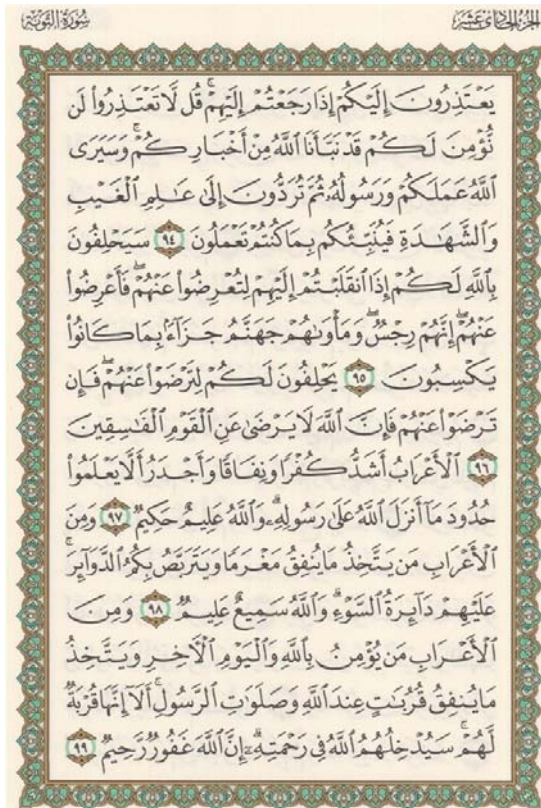 الجزء الحادي عشر
سورة التوبة
يَعْتَذِرُونَ إِلَيْكُمْ إِذَا رَجَعْتُمْ إِلَيْهِمْ ۚ قُل لَّا تَعْتَذِرُوا۟ لَن
نُّؤْمِنَ لَكُمْ قَدْ نَبَّأَنَا ٱللَّهُ مِنْ أَخْبَارِكُمْ ۚ وَسَيَرَى
ٱللَّهُ عَمَلَكُمْ وَرَسُولُهُۥ ثُمَّ تُرَدُّونَ إِلَىٰ عَـٰلِمِ ٱلْغَيْبِ
وَٱلشَّهَـٰدَةِ فَيُنَبِّئُكُم بِمَا كُنتُمْ تَعْمَلُونَ ٩٤ سَيَحْلِفُونَ
بِٱللَّهِ لَكُمْ إِذَا ٱنقَلَبْتُمْ إِلَيْهِمْ لِتُعْرِضُوا۟ عَنْهُمْ ۖ فَأَعْرِضُوا۟
عَنْهُمْ ۖ إِنَّهُمْ رِجْسٌ ۖ وَمَأْوَىٰهُمْ جَهَنَّمُ جَزَآءًۢ بِمَا كَانُوا۟
يَكْسِبُونَ ٩٥ يَحْلِفُونَ لَكُمْ لِتَرْضَوْا۟ عَنْهُمْ ۖ فَإِن
تَرْضَوْا۟ عَنْهُمْ فَإِنَّ ٱللَّهَ لَا يَرْضَىٰ عَنِ ٱلْقَوْمِ ٱلْفَـٰسِقِينَ
٩٦ ٱلْأَعْرَابُ أَشَدُّ كُفْرًا وَنِفَاقًا وَأَجْدَرُ أَلَّا يَعْلَمُوا۟
حُدُودَ مَآ أَنزَلَ ٱللَّهُ عَلَىٰ رَسُولِهِۦ ۗ وَٱللَّهُ عَلِيمٌ حَكِيمٌ ٩٧ وَمِنَ
ٱلْأَعْرَابِ مَن يَتَّخِذُ مَا يُنفِقُ مَغْرَمًا وَيَتَرَبَّصُ بِكُمُ ٱلدَّوَآئِرَ ۚ
عَلَيْهِمْ دَآئِرَةُ ٱلسَّوْءِ ۗ وَٱللَّهُ سَمِيعٌ عَلِيمٌ ٩٨ وَمِنَ
ٱلْأَعْرَابِ مَن يُؤْمِنُ بِٱللَّهِ وَٱلْيَوْمِ ٱلْـَٔاخِرِ وَيَتَّخِذُ
مَا يُنفِقُ قُرُبَـٰتٍ عِندَ ٱللَّهِ وَصَلَوَٰتِ ٱلرَّسُولِ ۚ أَلَآ إِنَّهَا قُرْبَةٌ
لَّهُمْ ۚ سَيُدْخِلُهُمُ ٱللَّهُ فِى رَحْمَتِهِۦٓ ۗ إِنَّ ٱللَّهَ غَفُورٌ رَّحِيمٌ ٩٩